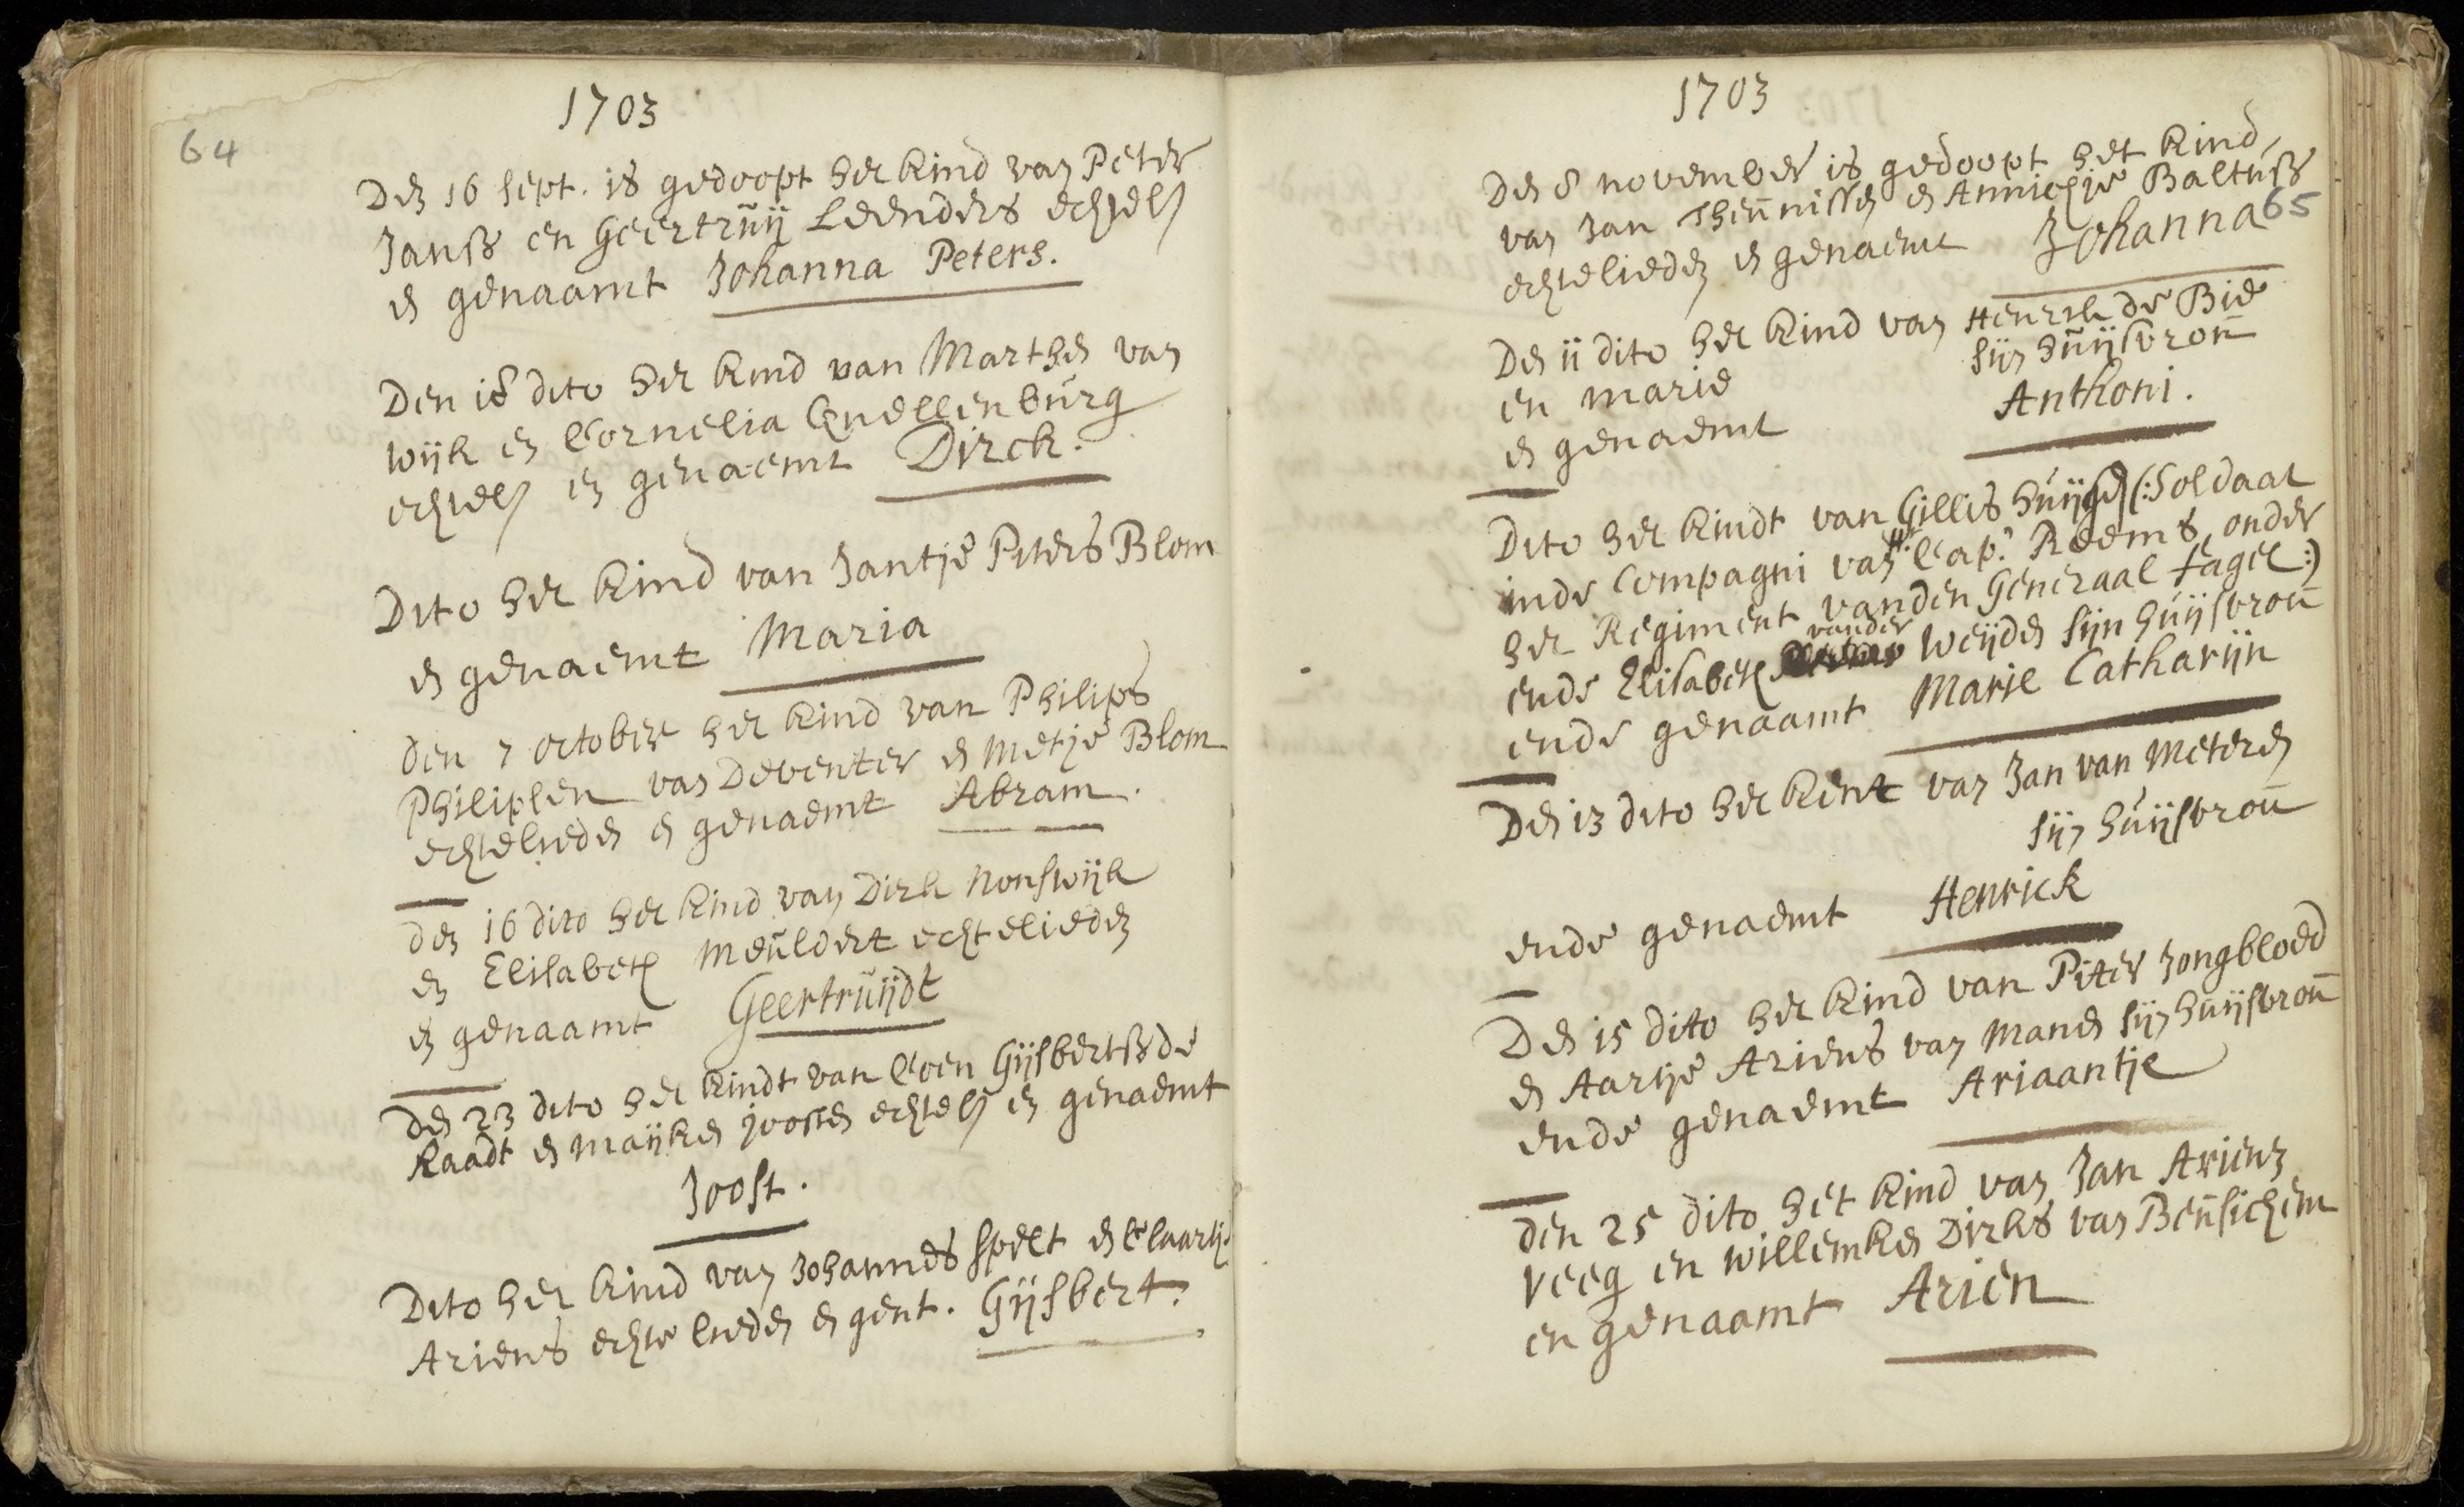 64
1703
Den 16 Sept. is gedoopt het kind van Peter
Janss en Geertruij Leenders echtel
en genaamt Johanna Peters.
Den 18 dito het kind van Marthen van
Wijk en Cornelia Quellenburg
echtel en genaemt Dirck.
Dito het kind van Jantje Peters Blom
en genaemt Maria
Den 7 october het kind van Philips
Philipsen van Deventer en Metje Blom
echtelieden en genaemt Abram.
Den 16 dito het kind van Dirk Nonswijk
en Elisabeth Meuldert echtelieden
en genaamt Geertruijdt
Den 23 dito het kindt van Coen Gijsbertss de
Raadt en Maijken Joosten echtel en genaemt
Joost.
Dito het kind van Johannes Spelt en Claartje
Ariens echte lieden en gent. Gijsbert.
1703
Den 8 november is gedoopt het kind
van Jan Theunissen en Annichje Baltuss
echtelieden en genaemt Johanna
65
Den 11 dito het kind van Henrik de Bie
en Marie sijn huijsvrou
en genaemt Anthoni.
Dito het kindt van Gillis Huijgen (: Soldaat
inde Compagni van Hr. Cap. Reems, onder
het Regiment vanden Generaal Fagel :)
ende Elisabeth vander Weijden sijn huijsvrou
ende genaamt Marie Catharijn
Den 13 dito het kint van Jan van Meteren
sijn huijsvrou
ende genaemt Henrick
Den 15 dito het kind van Piter Jongbloed
en Aartje Ariens van Manen sijn huijsvrou
ende genaemt Ariaantje
Den 25 dito het kind van Jan Ariens
Veeg en Willemken Dirks van Beusichem
en genaamt Arien